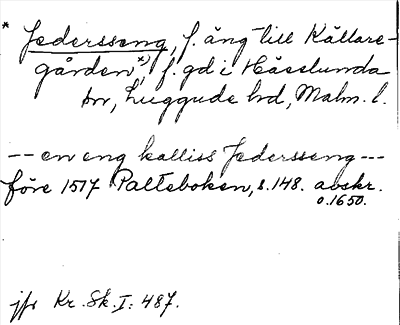 * Jedersseng, f. äng till Källare-
gården*), f. gd i Hässlunda
sn, Luggude hd, Malm. l.
-- en eng kalliss Jedersseng ---
före 1517 Palteboken, s. 148. avskr.
o. 1650.
jfr Kr. Sk. I: 487.